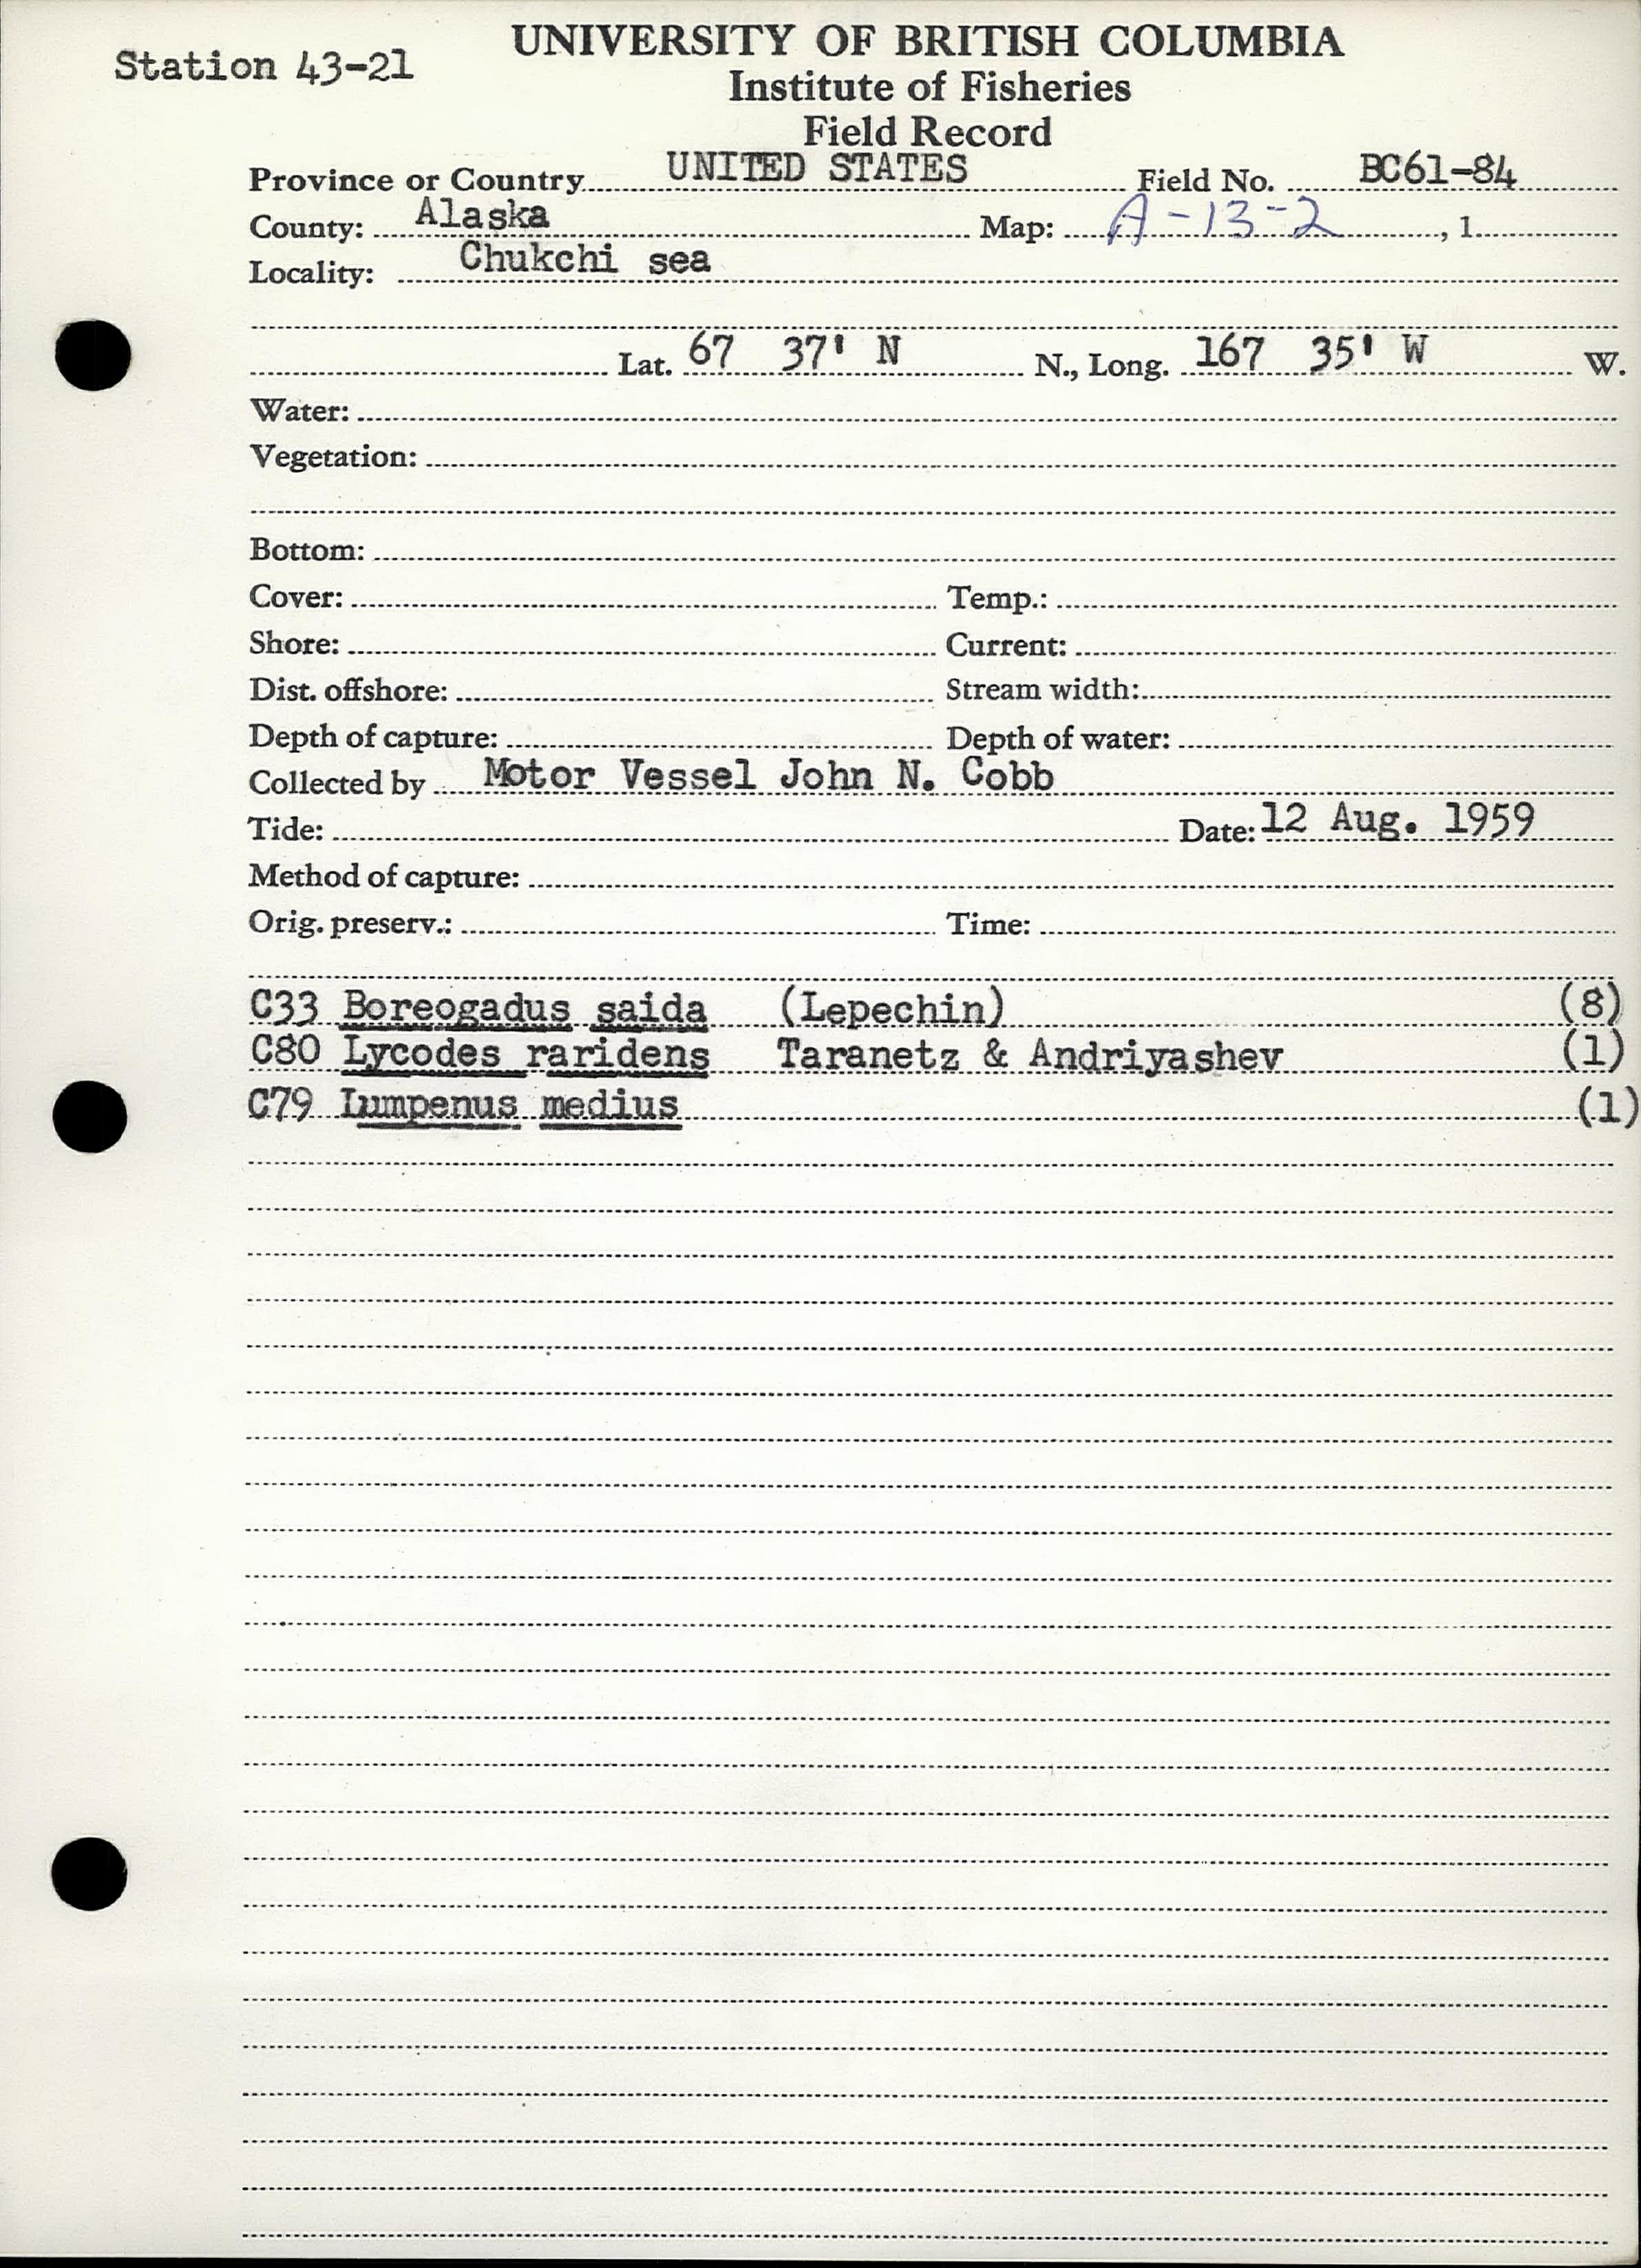 Station 43-21
UNIVERSITY OF BRITISH COLUMBIA
Institute of Fisheries
Field Record
Province or Country UNITED STATES Field No. BC61-84
County: Alaska Map: A-13-2 , 1
Locality: Chukchi sea
Lat. 67 37' N N., Long. 167 35' W W.
Water:
Vegetation:
Bottom:
Cover: Temp.:
Shore: Current:
Dist. offshore: Stream width:
Depth of capture: Depth of water:
Collected by Motor Vessel John N. Cobb
Tide: Date: 12 Aug. 1959
Method of capture:
Orig. preserv.: Time:
C33 Boreogadus saida (Lepechin) (8)
C80 Lycodes raridens Taranetz & Andriyashev (1)
C79 Lumpenus medius (1)